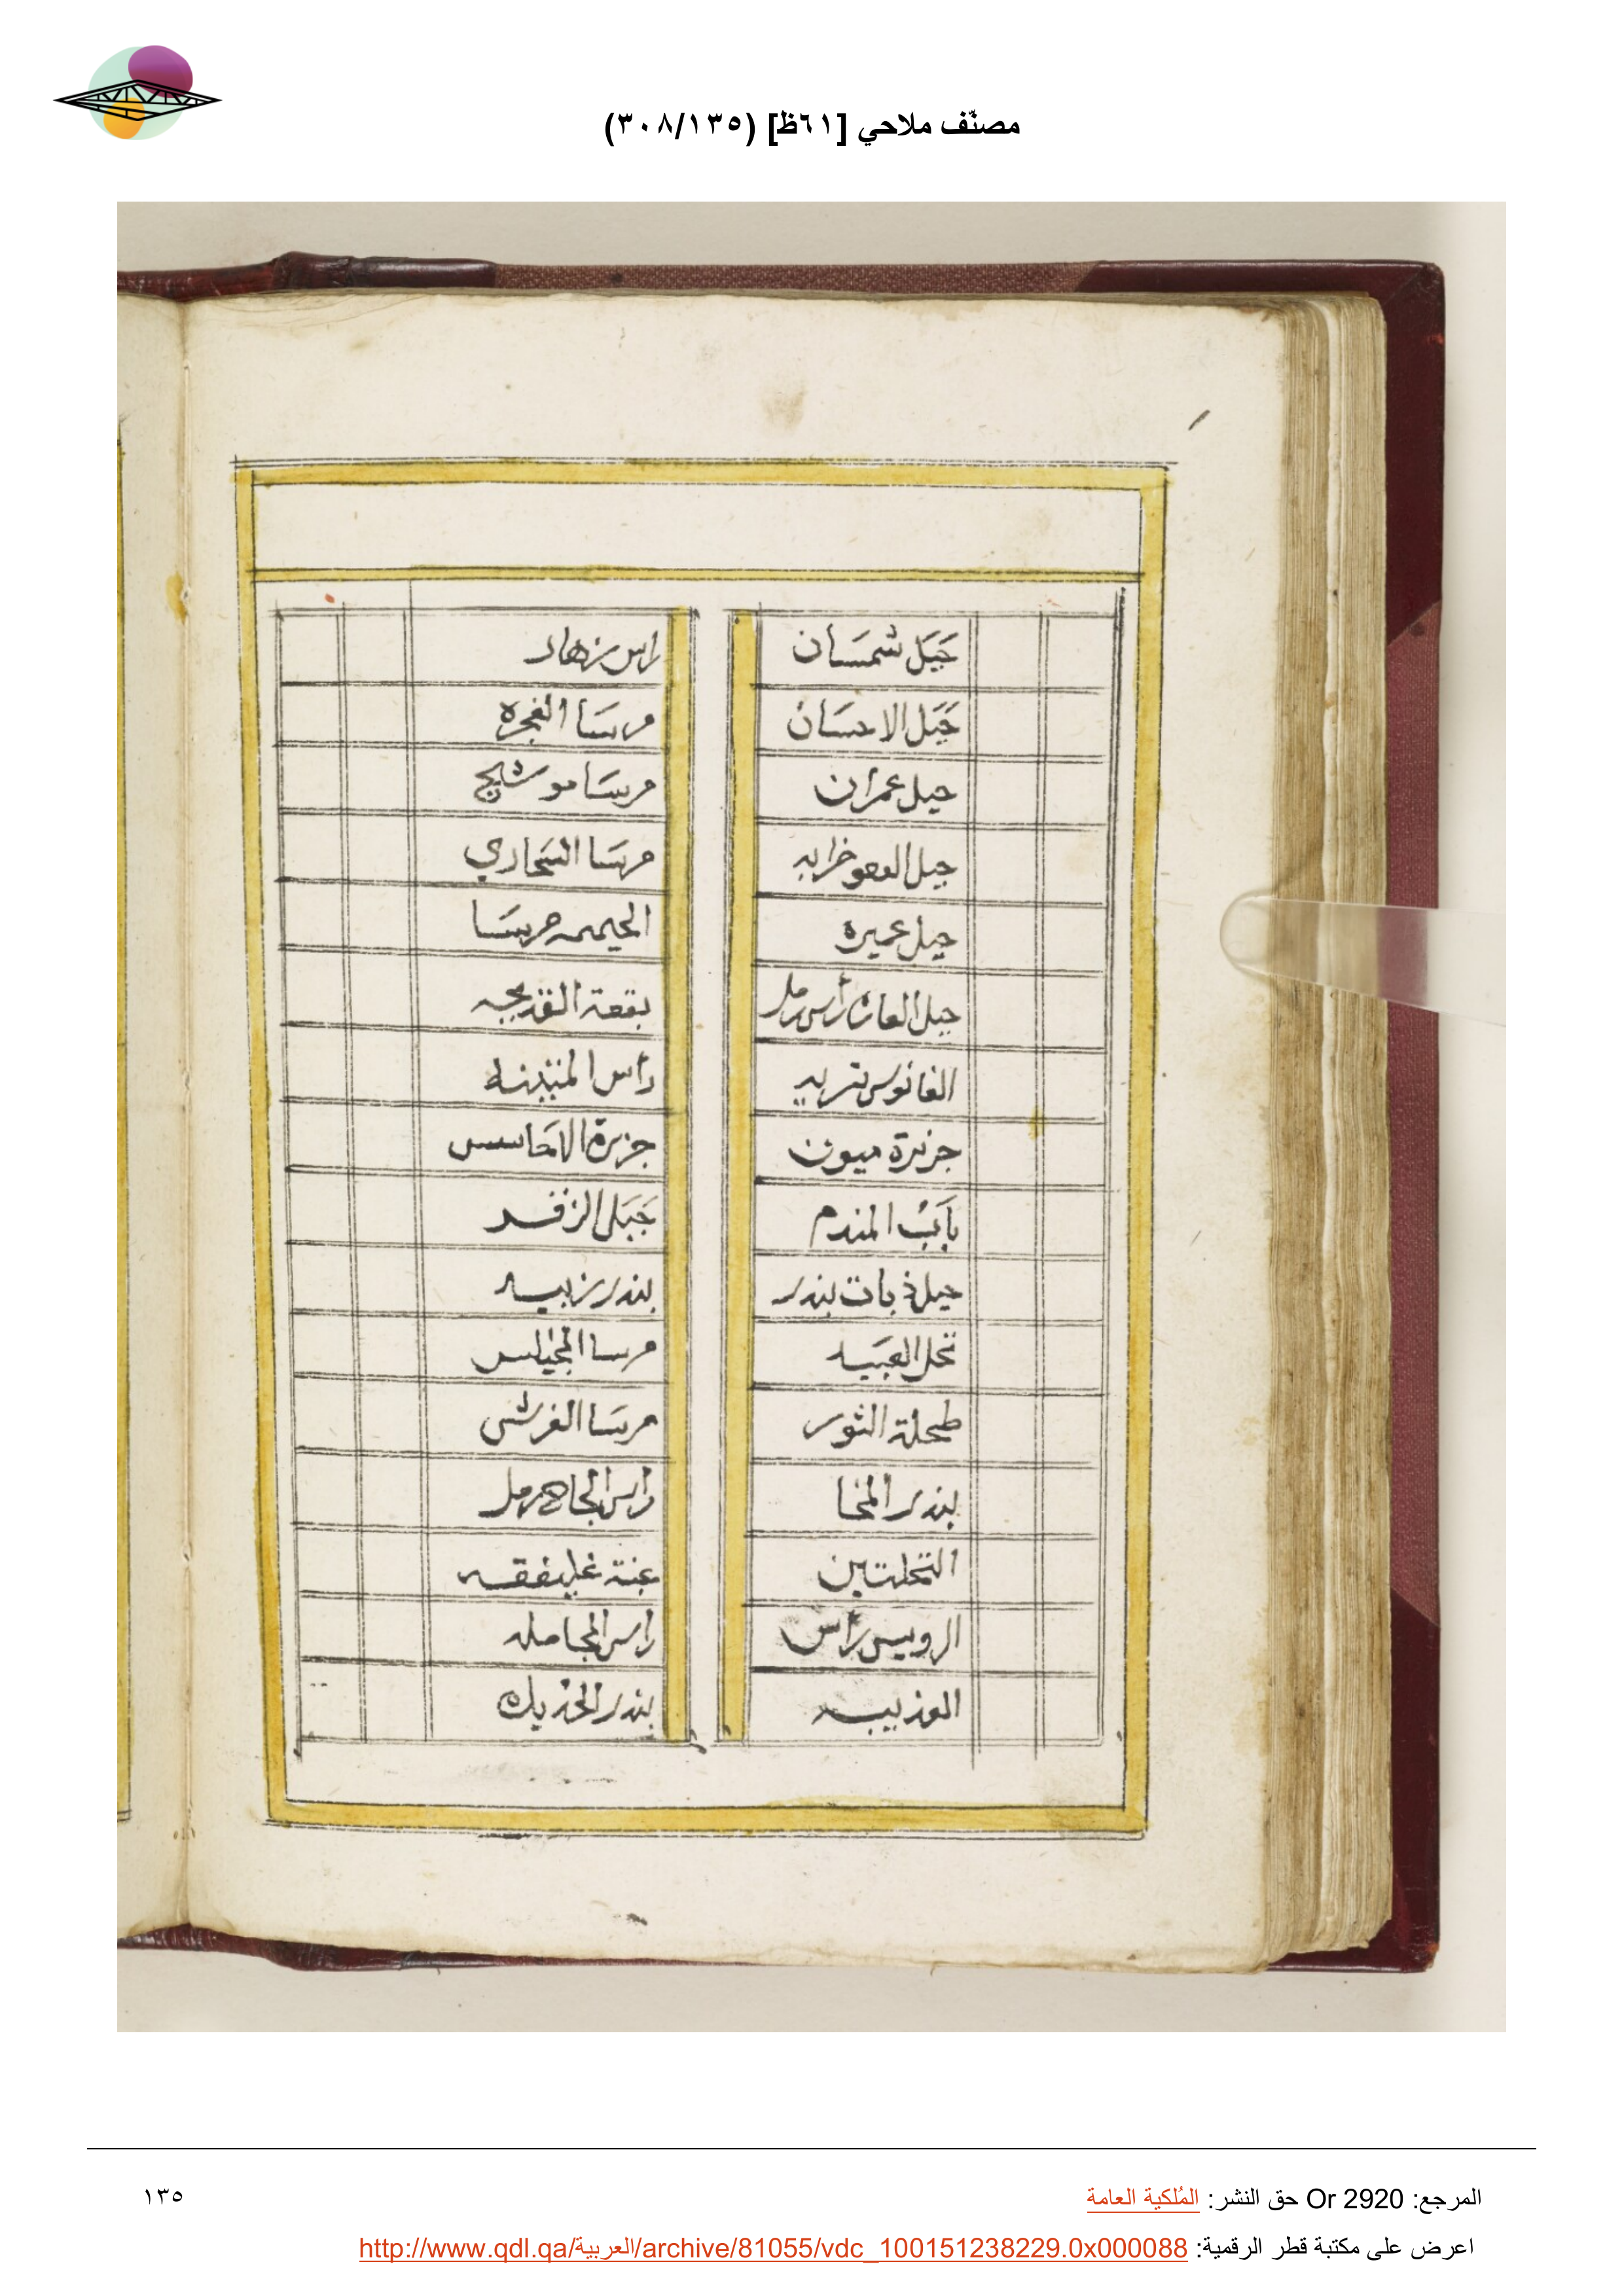 مصنّف ملاحي [٦١ظ] (٣٠٨/١٣٥)
جَبَل شمسَان
جَبَل الاحسَان
جبل عمران
جبل خرابه
جبل عميره
جبل العاره رأس رمل
الفانوس تربه
جزيرة ميون
بَابُ المندم
جبل ذباب بندر
نخل العبَيد
طحلة الثور
بندر المخا
النخلتين
الرويس رأس
العذيبه
راس زهار
مرسَا الفجره
مرسَا موشج
مرسَا السَحاري
الحيمه مرسَا
بقعة القديحه
رأس المتينه
جزيرة
جَبَل الزقر
بندر زبيد
مرسا المجيلس
مرسَا الفرشي
راس الجاح رمل
غبة غليفقه
راس المجامله
بندر الحديده
المرجع: Or 2920 حق النشر: المُلكية العامة
١٣٥
اعرض على مكتبة قطر الرقمية: http://www.qdl.qa/العربية/archive/81055/vdc_100151238229.0x000088